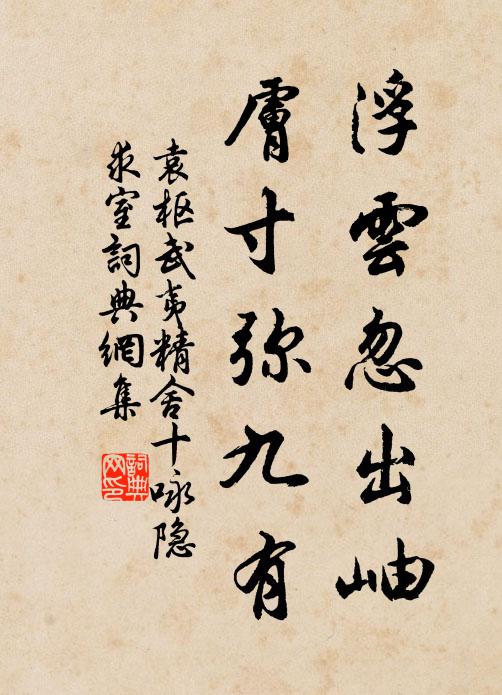 浮雲忽出岫
膚寸弥九有
袁枢武夷精舍十咏隐
求室詞典網集
詞典網印